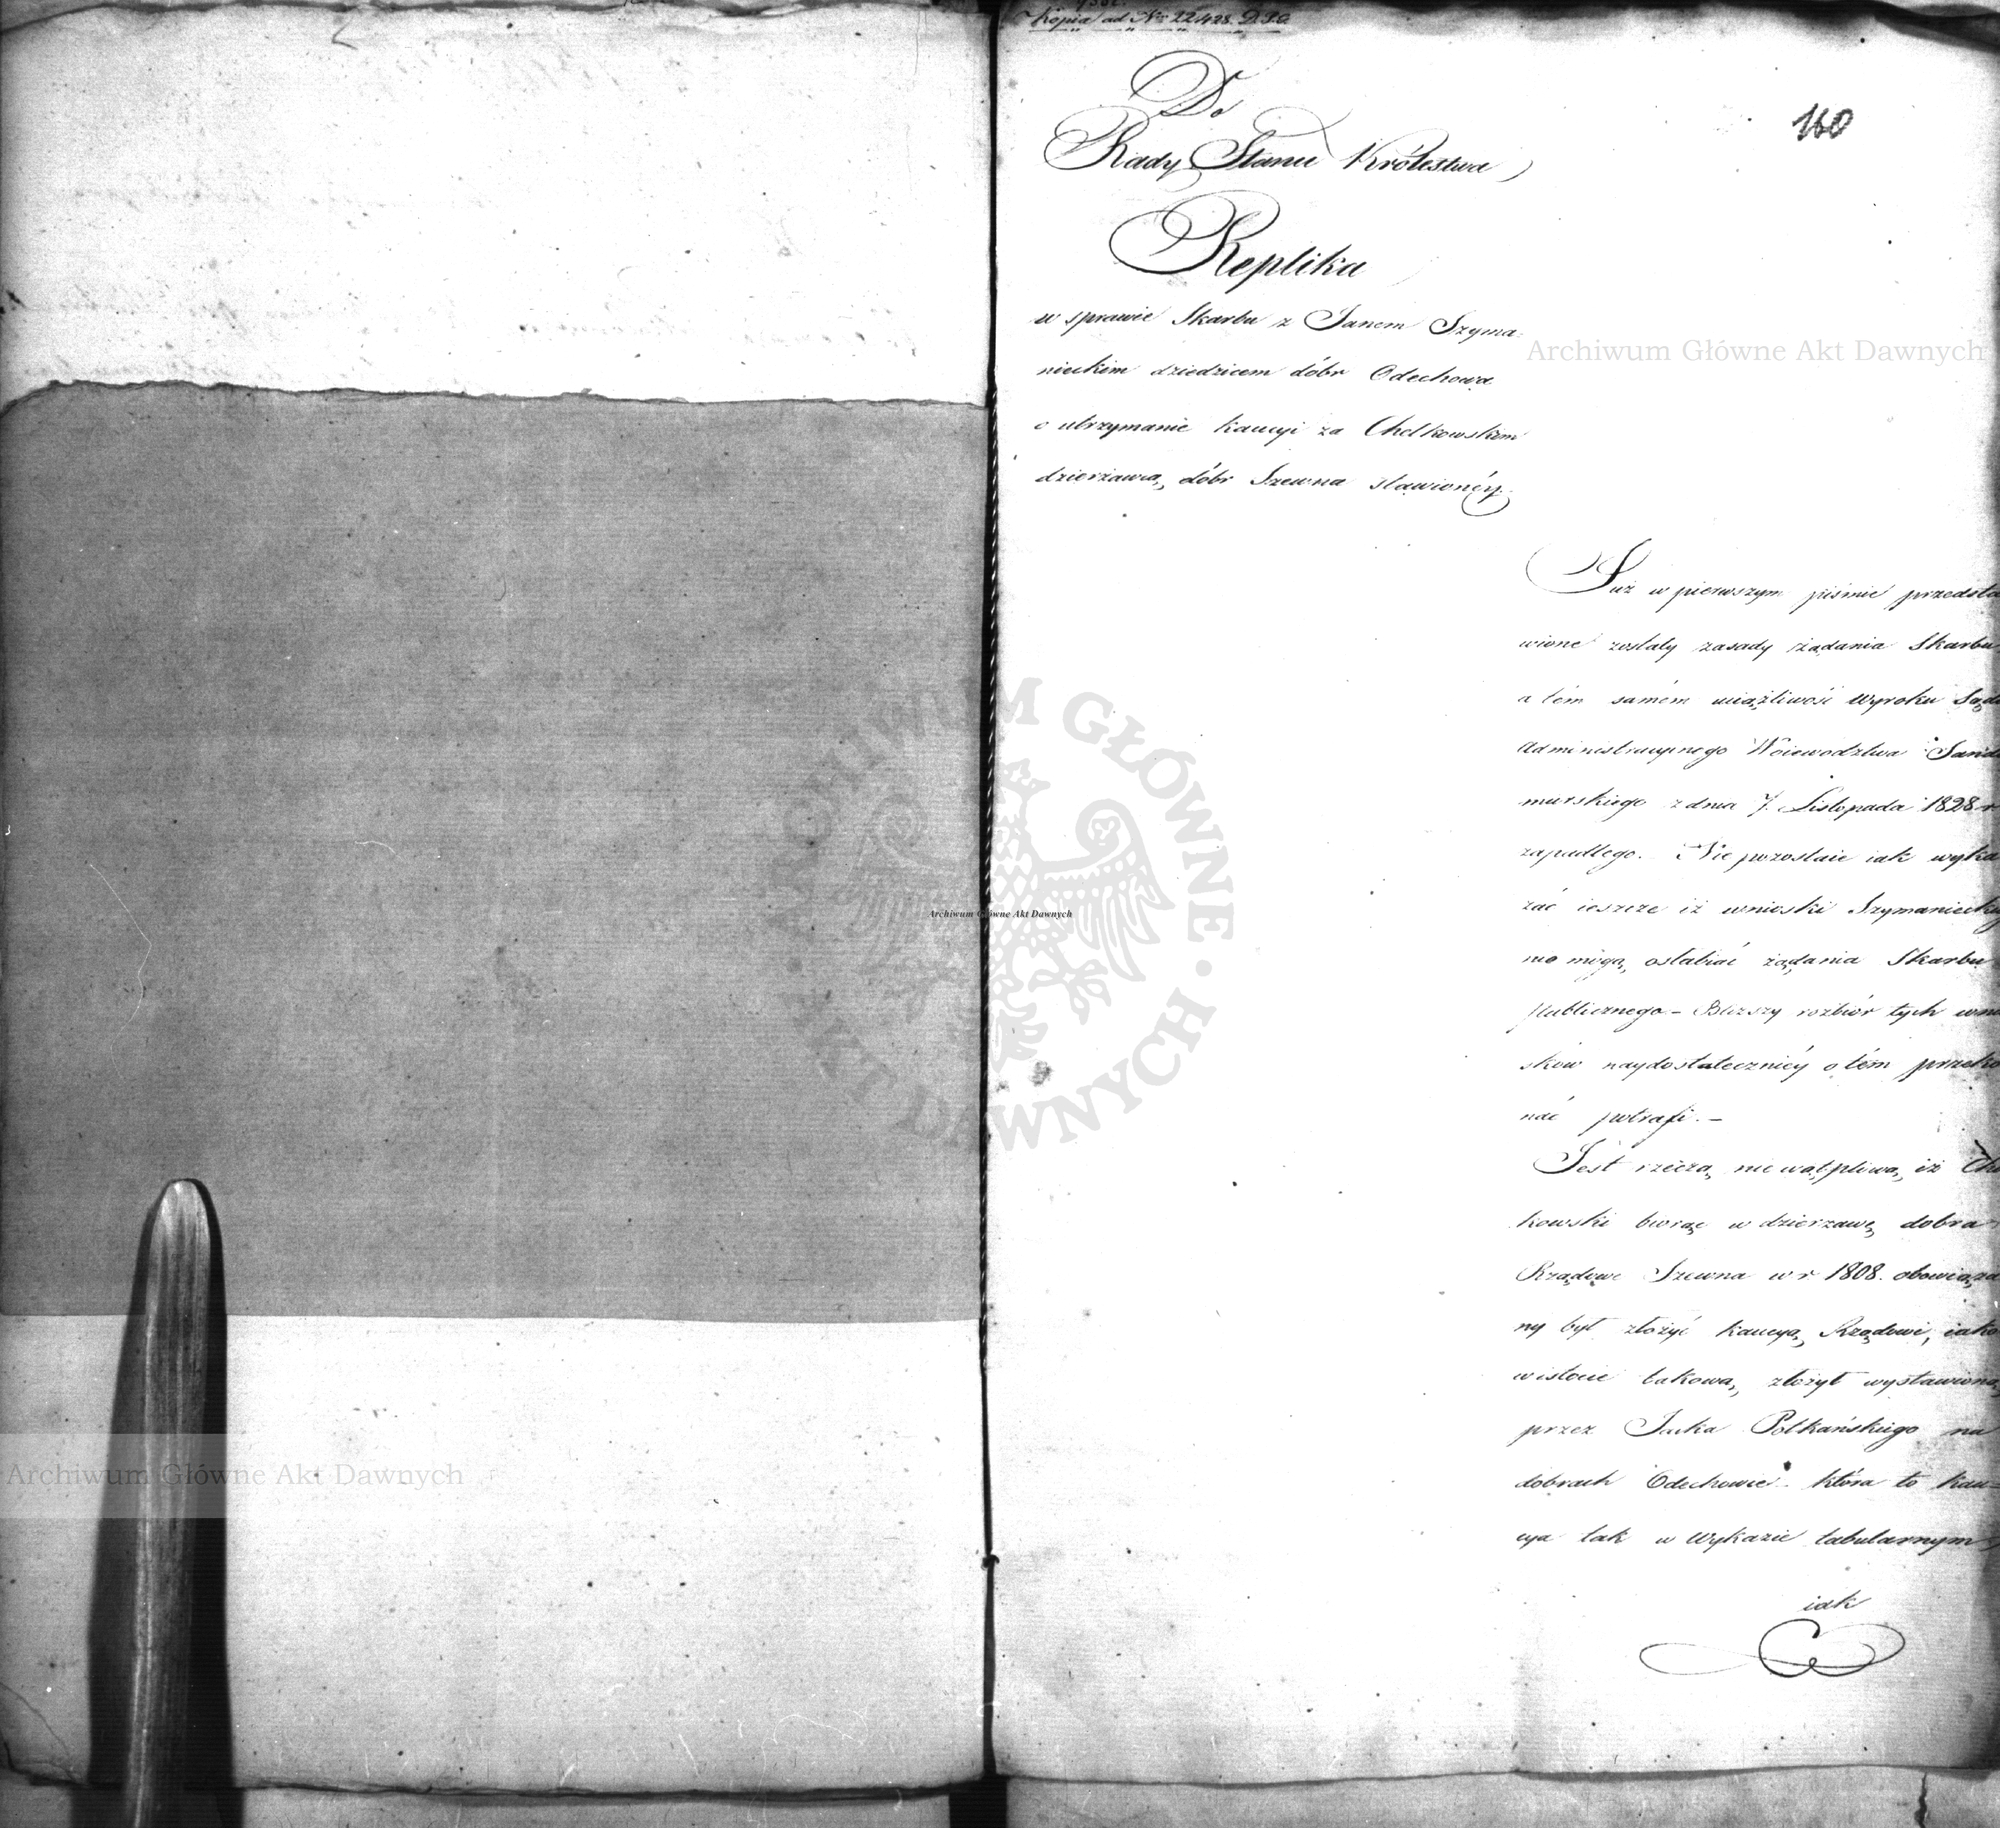 Kopia ad Nr 22428. D.P.O.
160
Do
Rady Stanu Królestwa
Replika
w sprawie Skarbu z Janem Szyma-
nieckim dziedzicem dóbr Odechowa
o utrzymanie kaucyi za Chelkowskim
dzierżawcą dóbr Szewna stawionéy.
Już w pierwszym piśmie przedsta
wione zostały zasady żądania Skarbu
a tém samém uciążliwość Wyroku Sądu
Administracyinego Woiewodztwa Sando
mirskiego z dnia 7. Listopada 1828 r.
zapadłego. Nie pozostaie iak wyka
zać ieszcze iż wnioski Szymanieckiego
nie mogą osłabiać żądania Skarbu
publicznego – Bliższy rozbiór tych wnio
sków naydostatecznićy o tém przeko
nać potrafi. –
Jest rzeczą niewątpliwą, iż Chel
kowski biorąc w dzierżawę dobra
Rządowe Szewna w r. 1808. obowiąza
ny był złożyć kaucyą Rządowi, iakoż
w istocie takową, złożył wystawioną
przez Jacka Potkańskiego na
dobrach Odechowie – która to kau=
cya tak w Wykazie tabularnym
iak
Archiwum Główne Akt Dawnych
Archiwum Główne Akt Dawnych
Archiwum Główne Akt Dawnych
ARCHIWUM GŁÓWNE • AKT DAWNYCH •